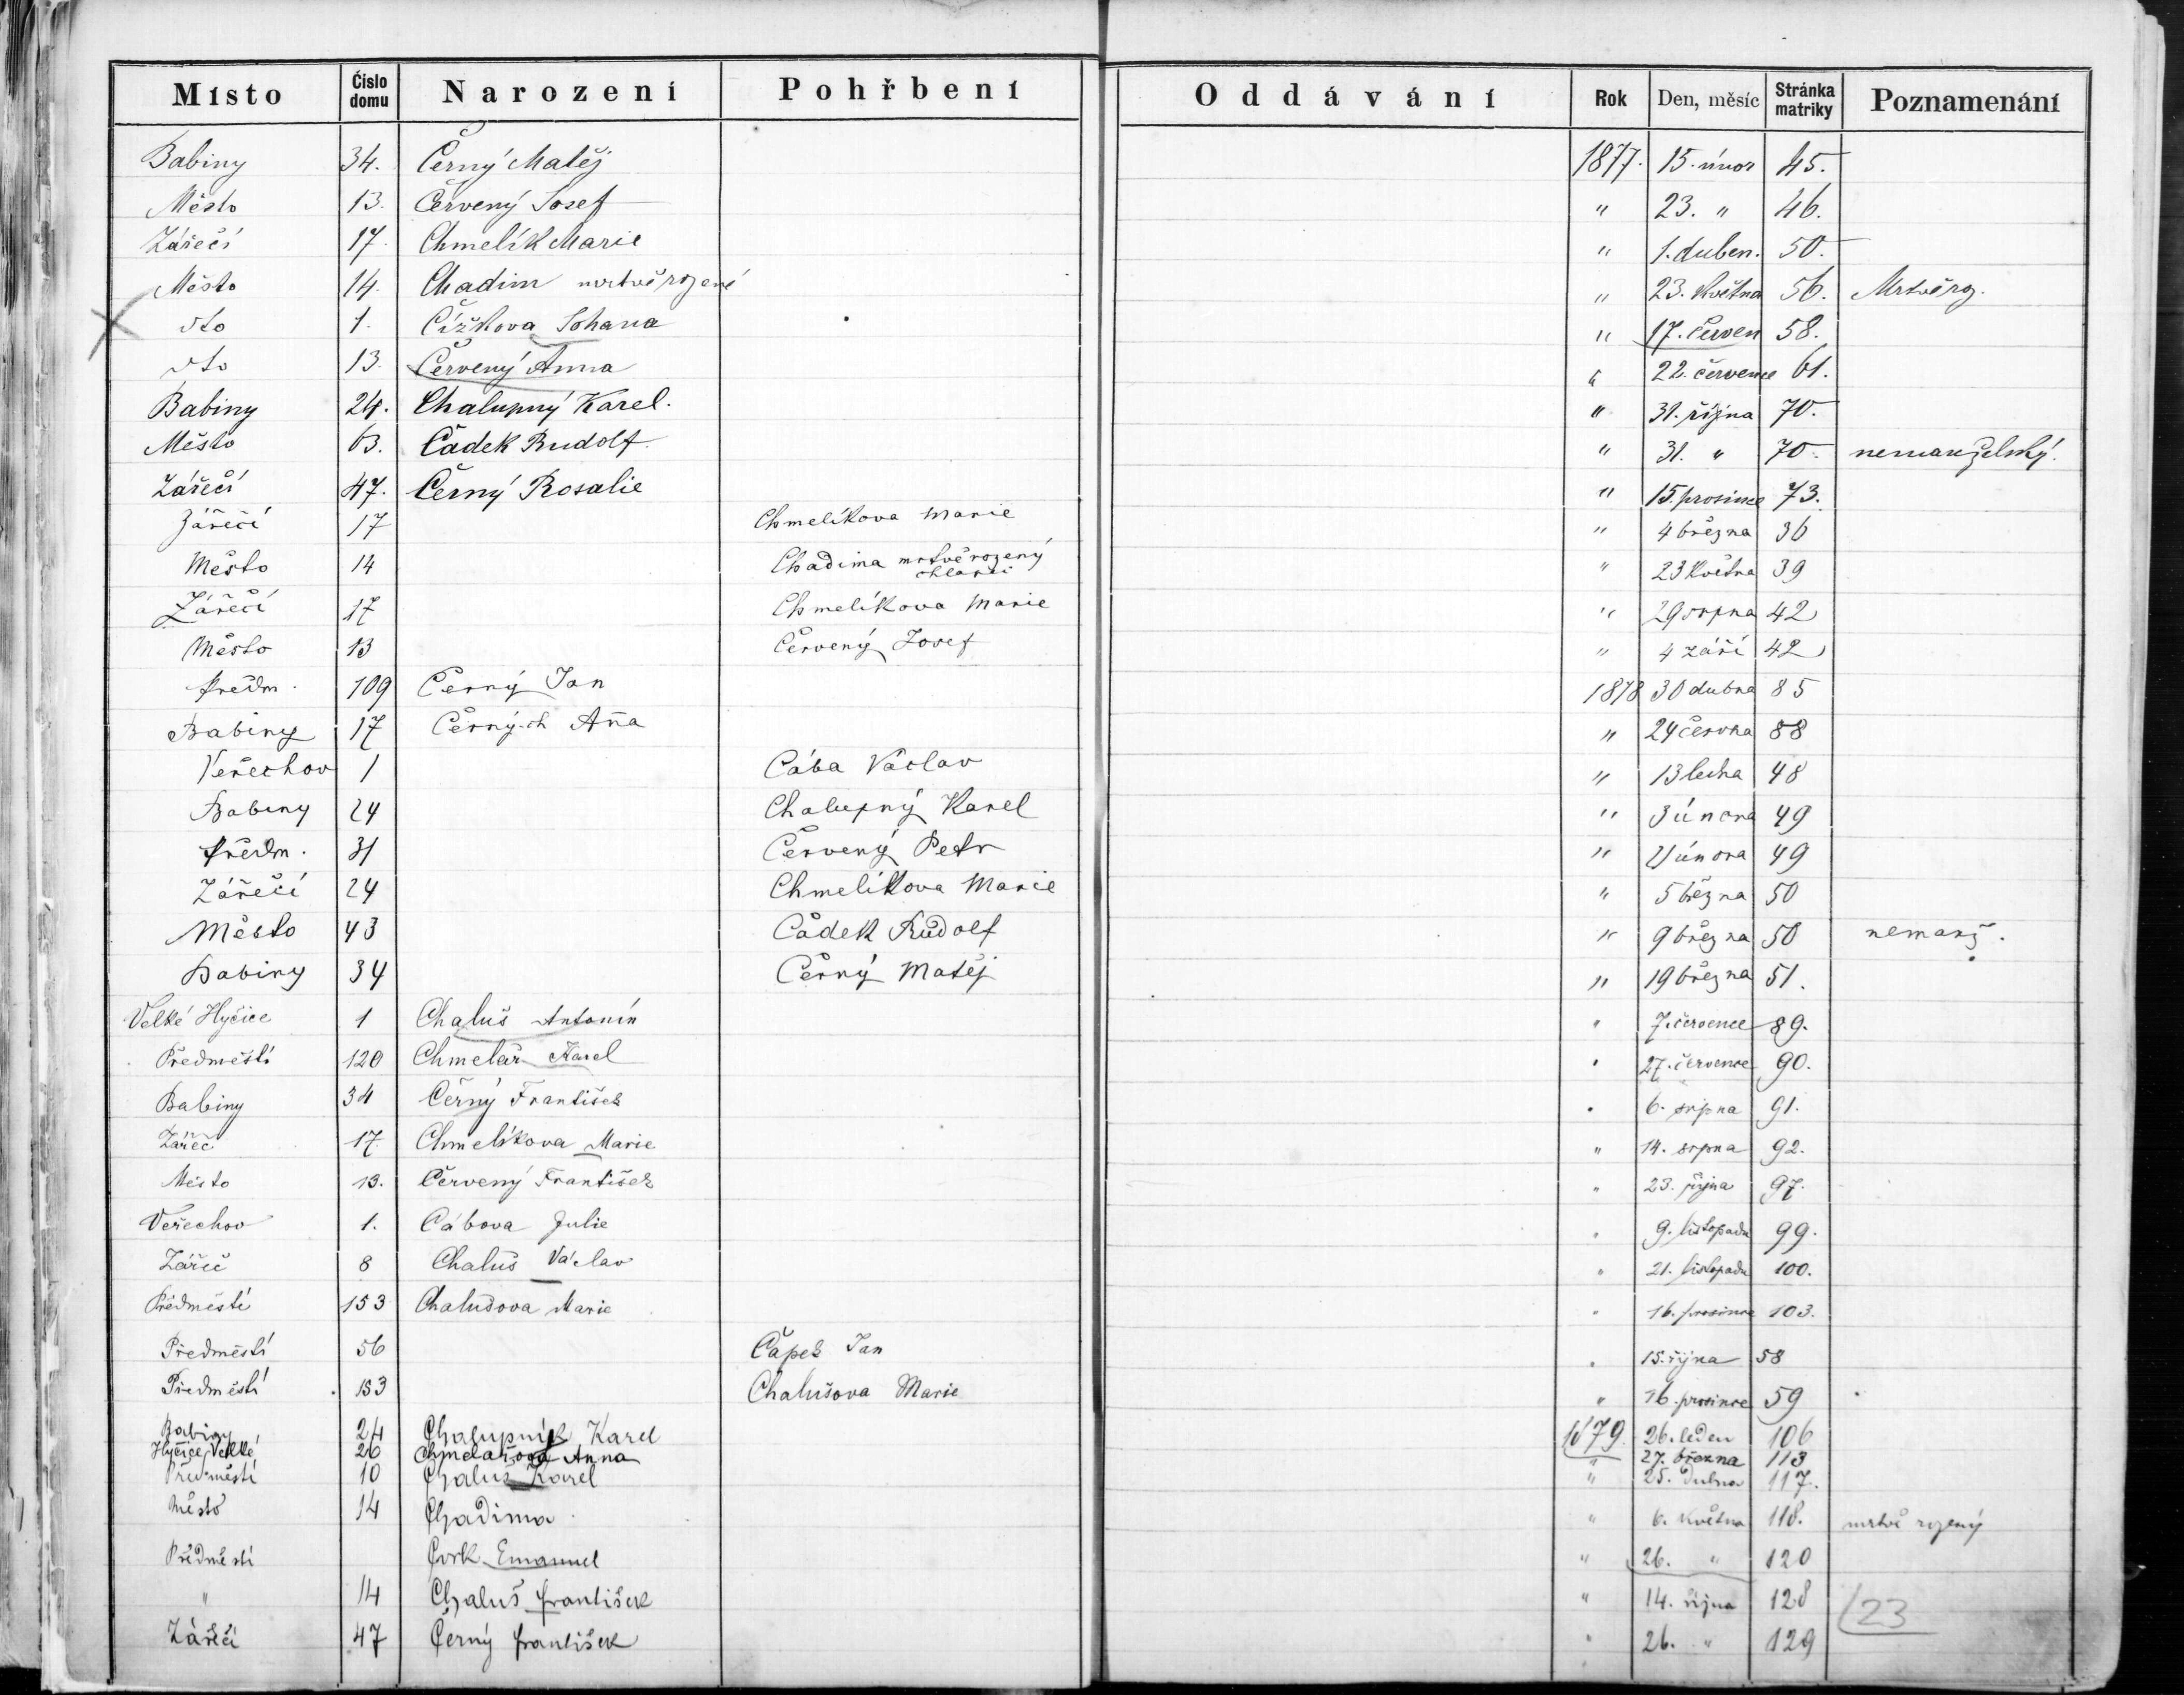 Místo Číslo domu Narození Pohřbení Oddávání Rok Den, měsíc Stránka matriky Poznamenání
Babiny 34. Černý Matěj 1877. 15. únor 45.
Město 13. Červený Josef " 23. " 46.
Zářečí 17. Chmelík Marie " 1. duben. 50.
Město 14. Chadim mrtvě rozené " 23. května 56. Mrtvě roz.
dto 1. Čížkova Johana " 17. červen 58.
dto 13. Červený Anna " 22. července 61.
Babiny 24. Chalupný Karel. " 31. října 70.
Město 63. Čadek Rudolf. " 31. " 70. nemanželský.
Zářečí 47. Černý Rosalie " 15. prosince 73.
Zářečí 17 Chmelíkova Marie " 4 března 36
Město 14 Chadima mrtvě rozený " 23 května 39
Zářečí 17 Chmelíkova Marie " 29 srpna 42
Město 13 Červený Josef " 4 září 42
Předm. 109 Černý Jan 1878 30 dubna 85
Babiny 17 Černých Aña " 24 června 88
Veřechov 1 Cába Václav " 13 ledna 48
Babiny 24 Chalupný Karel " 3 února 49
Předm. 31 Červený Petr " února 49
Zářečí 24 Chmelíkova Marie " 5 března 50
Město 43 Čádek Rudolf " 9 března 50 nemanž.
Babiny 34 Černý Matěj " 19 března 51.
Velké Hyčice 1 Chaluš Antonín " 7. července 89.
Předměstí 120 Chmelař Karel " 27. července 90.
Babiny 34 Černý František " 6. srpna 91.
Zářeč 17 Chmelíkova Marie " 14. srpna 92.
Město 13. Červený František " 23. října 97.
Veřechov 1. Cábova Julie " 9. listopadu 99.
Zářeč 8 Chaluš Václav " 21. listopadu 100.
Předměstí 153 Chalušova Marie " 16. prosince 103.
Předměstí 56 Čapek Jan " 15. října 58
Předměstí 153 Chalušova Marie " 16. prosince 59
Babiny 24 Chalupník Karel 1879. 26. leden 106
Hyčice Velké 26 Chmelařova Anna " 27. března 113
Předměstí 10 Chaluš Karel " 25. dubna 117.
Město 14 Chadima " 6. května 118. mrtvě rozený
Předměstí Emanuel " 26. " 120
" 14 Chaluš František " 14. října 128 23
Zářečí 47 Černý František " 26. " 129